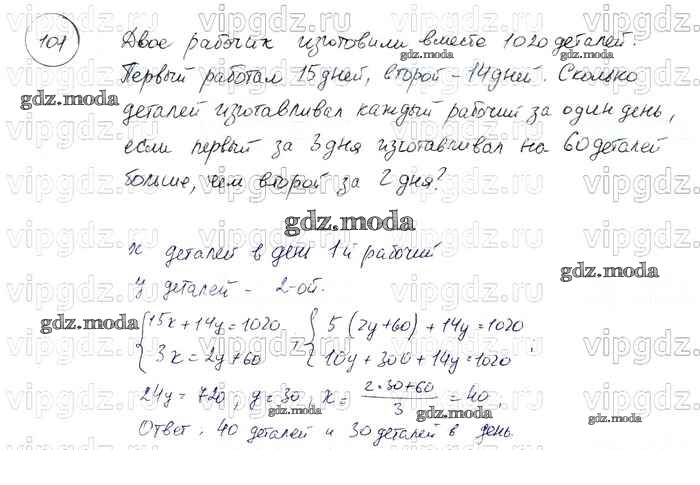 107
Двое рабочих изготовили вместе 1020 деталей.
Первый работал 15 дней, второй - 14 дней. Сколько
деталей изготавливал каждый рабочий за один день,
если первый за 3 дня изготавливал на 60 деталей
больше, чем второй за 2 дня?
gdz.moda
x деталей в день 1-й рабочий
y деталей - 2-ой.
{15x + 14y = 1020 {5(2y+60) + 14y = 1020
{3x = 2y + 60 , {10y + 300 + 14y = 1020 ;
24y = 720, y = 30, x = (2·30+60)/3 = 40,
Ответ. 40 деталей и 30 деталей в день.